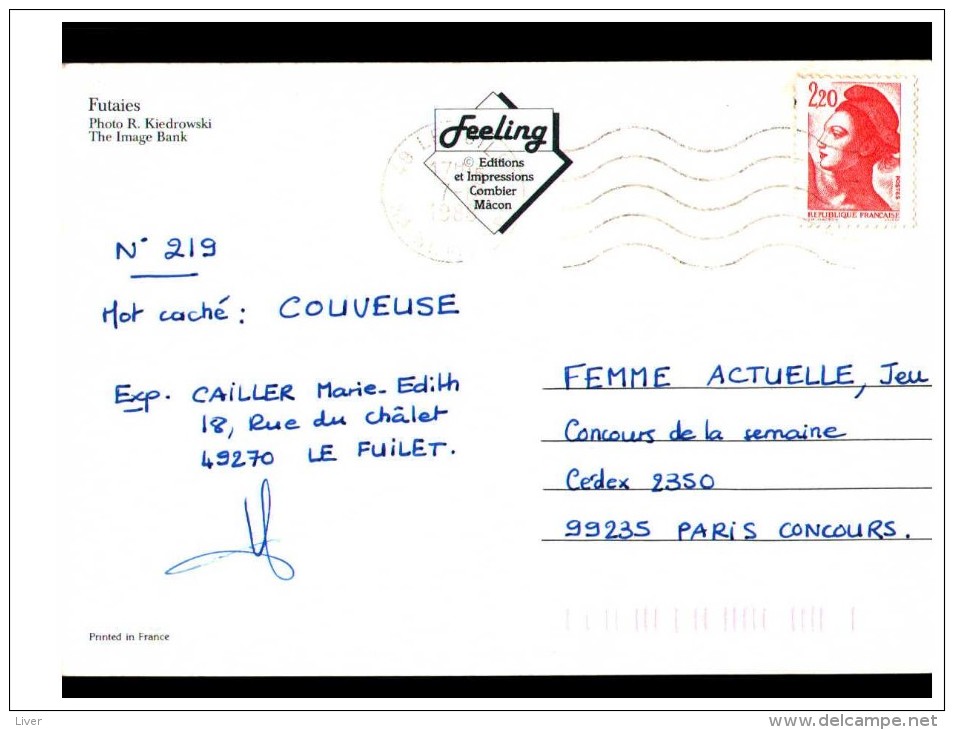 Futaies
Photo R. Kiedrowski
The Image Bank
Feeling
© Editions
et Impressions
Combier
Mâcon
2,20
POSTES
REPUBLIQUE FRANCAISE
N° 219
Mot caché : COUVEUSE
Exp. CAILLER Marie-Edith
18, Rue du châlet
49270 LE FUILET.
FEMME ACTUELLE, Jeu
Concours de la semaine
Cédex 2350
99235 PARIS CONCOURS.
Printed in France
Liver
www.delcampe.net